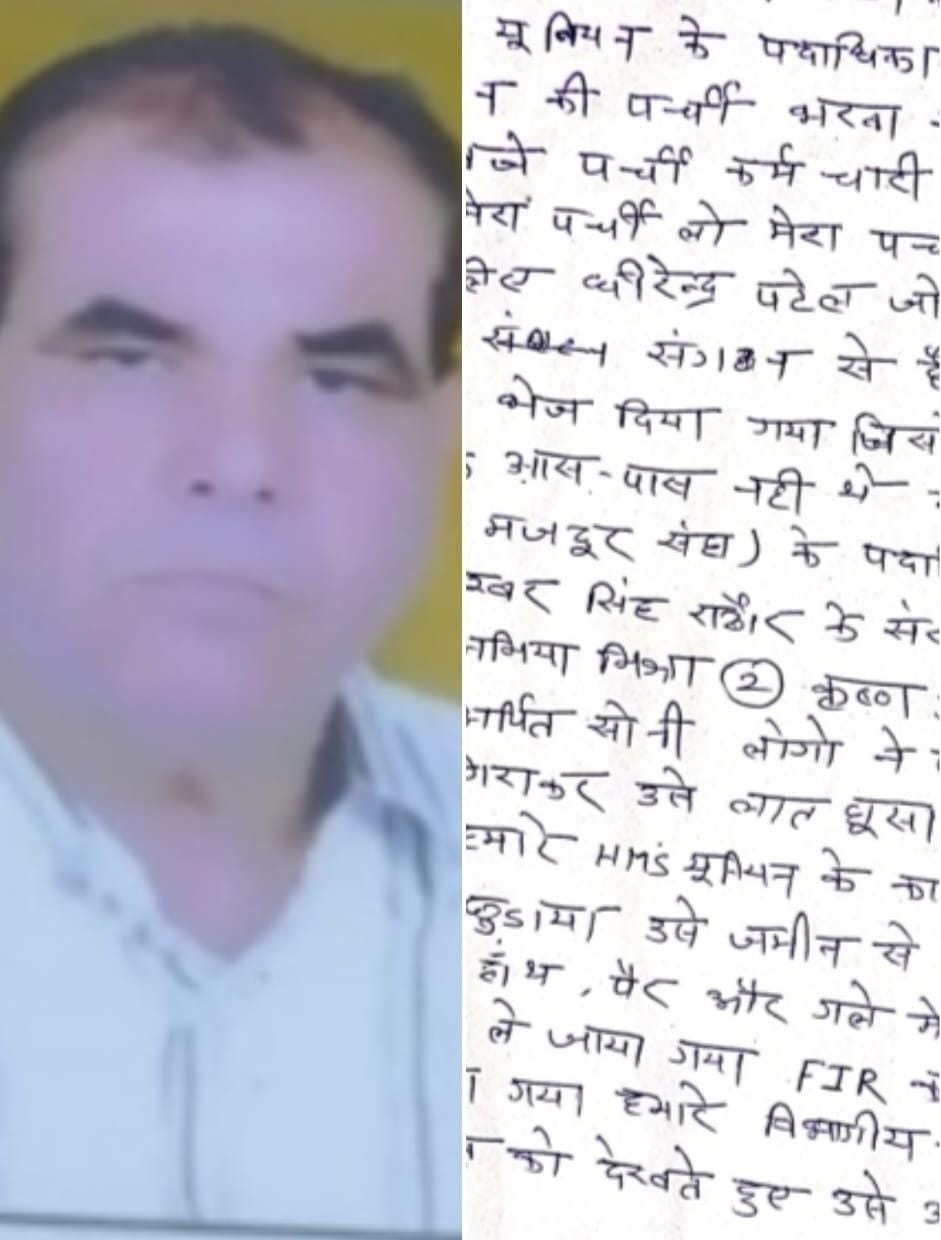 यूनियन के पदाधिका
न की पर्ची भरना
पर्ची कर्मचारी
मेरा पर्ची लो मेरा पर्च
धीरेन्द्र पटेल जो
संगठन से है
भेज दिया गया जिस
आस-पास नही थे
मजदूर संघ) के पदा
सिंह राठौर के सं
मिश्रा ② कृष्ण
र्पित सोनी लोगो ने
गिराकर उसे लात घूसा
हमारे HMS यूनियन के का
छुडाया उसे जमीन से
हाँथ, पैर और गले मे
ले जाया गया FIR
गया हमारे विभागीय
को देखते हुए उसे